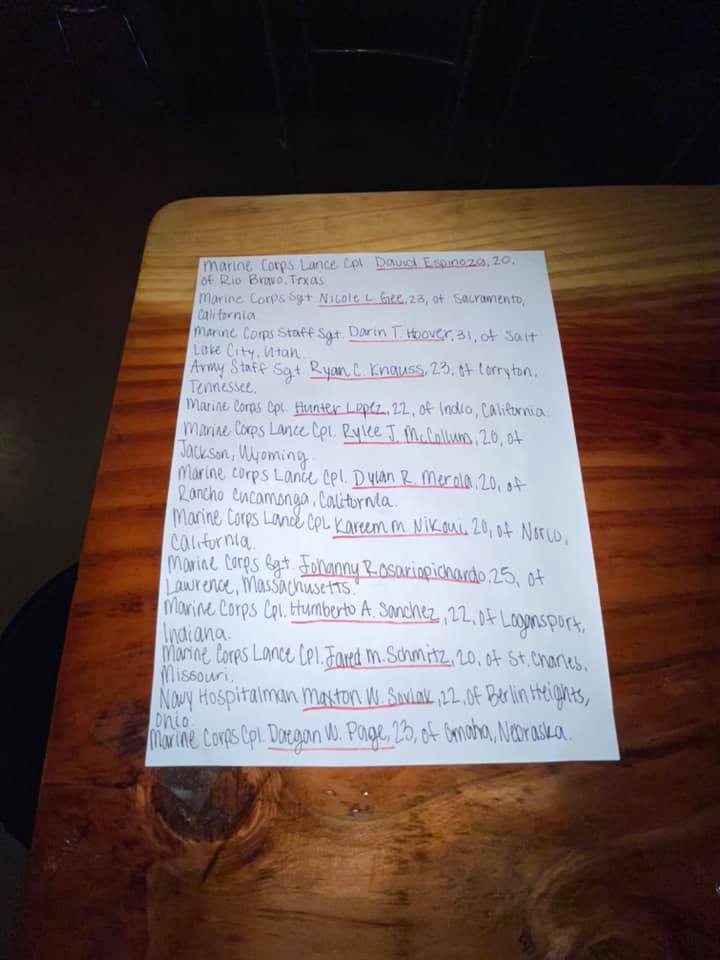 Marine Corps Lance Cpl. David Espinoza, 20,
of Rio Bravo, Texas
Marine Corps Sgt Nicole L. Gee, 23, of Sacramento,
California
Marine Corps Staff Sgt. Darin T. Hoover, 31, of Salt
Lake City, Utah.
Army Staff Sgt. Ryan C. Knauss, 23, of Corryton,
Tennessee.
Marine Corps Cpl. Hunter Lopez, 22, of Indio, California
Marine Corps Lance Cpl. Rylee J. McCollum, 20, of
Jackson, Wyoming.
Marine Corps Lance Cpl. Dylan R. Merola, 20, of
Rancho Cucamonga, California.
Marine Corps Lance Cpl. Kareem M. Nikoui, 20, of Norco,
California.
Marine Corps Sgt. Johanny Rosariopichardo, 25, of
Lawrence, Massachusetts.
Marine Corps Cpl. Humberto A. Sanchez, 22, of Logansport,
Indiana.
Marine Corps Lance Cpl. Jared M. Schmitz, 20, of St. Charles,
Missouri.
Navy Hospitalman Maxton W. Soviak, 22, of Berlin Heights,
Ohio.
Marine Corps Cpl. Daegan W. Page, 23, of Omaha, Nebraska.